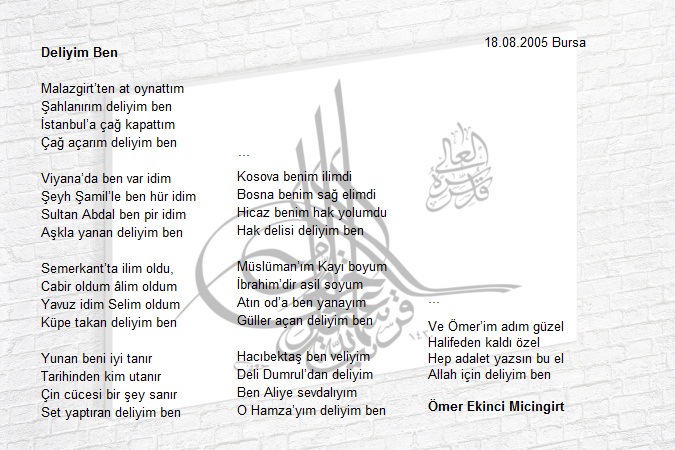 18.08.2005 Bursa
Deliyim Ben
Malazgirt'ten at oynattım
Şahlanırım deliyim ben
İstanbul'a çağ kapattım
Çağ açarım deliyim ben
Viyana'da ben var idim
Şeyh Şamil'le ben hür idim
Sultan Abdal ben pir idim
Aşkla yanan deliyim ben
Semerkant'ta ilim oldu,
Cabir oldum âlim oldum
Yavuz idim Selim oldum
Küpe takan deliyim ben
Yunan beni iyi tanır
Tarihinden kim utanır
Çin cücesi bir şey sanır
Set yaptıran deliyim ben
...
Kosova benim ilimdi
Bosna benim sağ elimdi
Hicaz benim hak yolumdu
Hak delisi deliyim ben
Müslüman'ım Kayı boyum
İbrahim'dir asil soyum
Atın od'a ben yanayım
Güller açan deliyim ben
Hacıbektaş ben veliyim
Deli Dumrul'dan deliyim
Ben Aliye sevdalıyım
O Hamza'yım deliyim ben
...
Ve Ömer'im adım güzel
Halifeden kaldı özel
Hep adalet yazsın bu el
Allah için deliyim ben
Ömer Ekinci Micingirt